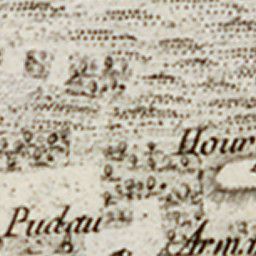 Hour
Pudau
Arm.n